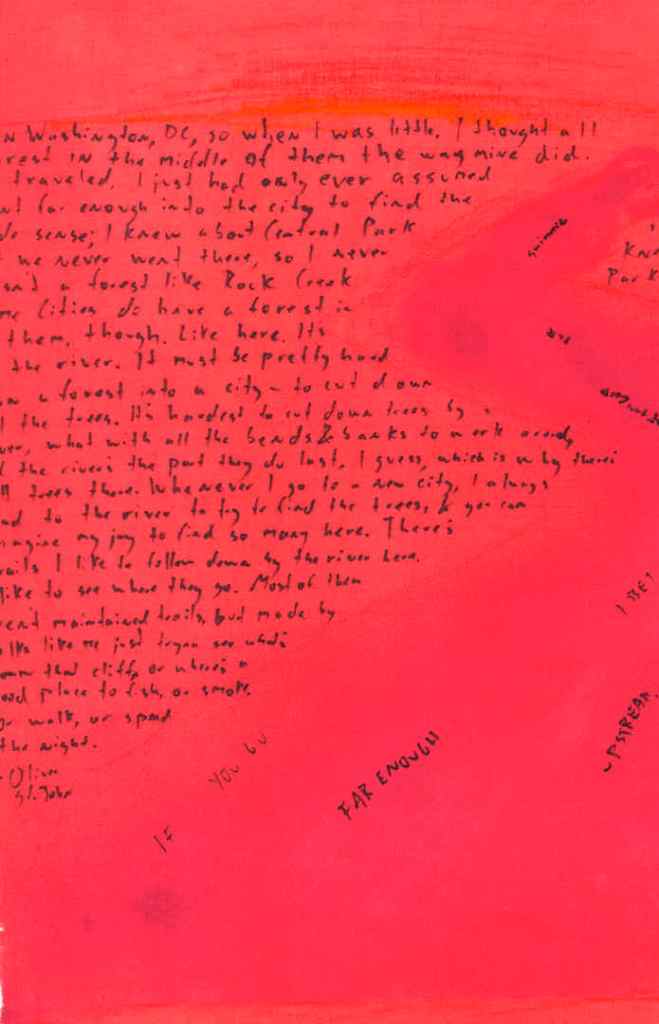 n Washington, DC, so when I was little, I thought all
rest in the middle of them the way mine did.
traveled. I just had only ever assumed
nt far enough into the city to find the
de sense; I knew about Central Park
t we never went there, so I never
asn't a forest like Rock Creek
me Cities do have a forest in
them, though. Like here. It's
the river. It must be pretty hard
a forest into a city - to cut down
l the trees. It's hardest to cut down trees by a
ver, what with all the bends & banks to work around,
the river's the part they do last, I guess, which is why there's
ll trees there. Whenever I go to a new city, I always
ad to the river to try to find the trees, & you can
magine my joy to find so many here. There's
rails I like to follow down by the river here.
like to see where they go. Most of them
ren't maintained trails, but made by
olks like me just tryna see what's
own that cliff, or where's a
ood place to fish, or smoke,
or walk, or spend
the night.
- Oliver
St. John
Kno
Park
I BET
UPSTREAM,
FAR ENOUGH
YOU GO
IF